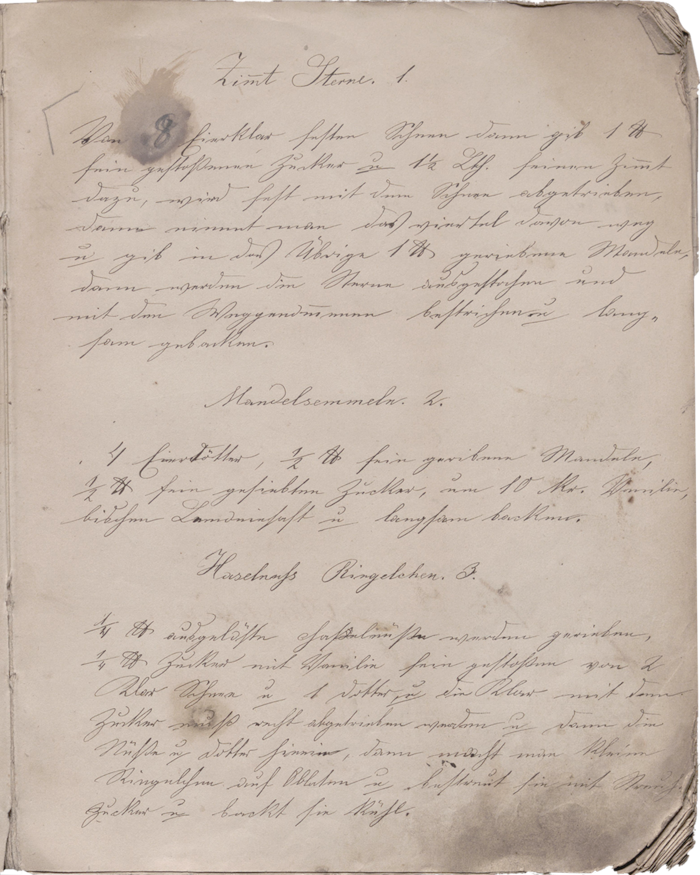 Zimmt Sterne. 1.
Von 8 Eierklar festen Schnee dann gib 1 ℔
fein gestoßenen Zucker u 1½ Lth. feinen Zimmt
dazu, wird fest mit dem Schnee abgetrieben,
dann nimmt man das viertel davon weg
u gib in das Übrige 1 ℔ geriebene Mandeln,
dann werden die Sterne ausgestochen und
mit den Weggenommenen bestrichen u lang„
sam gebacken.
Mandelsemmeln. 2.
4 Eierdötter, ½ ℔ fein geribene Mandeln,
½ ℔ fein gesiebten Zucker, um 10 Kr. Vanilie,
bischen Lemoniesaft u langsam backen.
Haselnuss Ringelchen. 3.
¼ ℔ ausgelöste Haßelnüße werden gerieben,
¼ ℔ Zucker mit Vanilie fein gestoßen von 2
Klar Schnee u 1 Dotter, u die Klar mit dem
Zucker muß recht abgetrieben werden u dann die
Nüße u Dotter hinein, dann macht man kleine
Ringelchen auf Oblaten u bestreut sie mit
Zucker u backt sie Kühl.